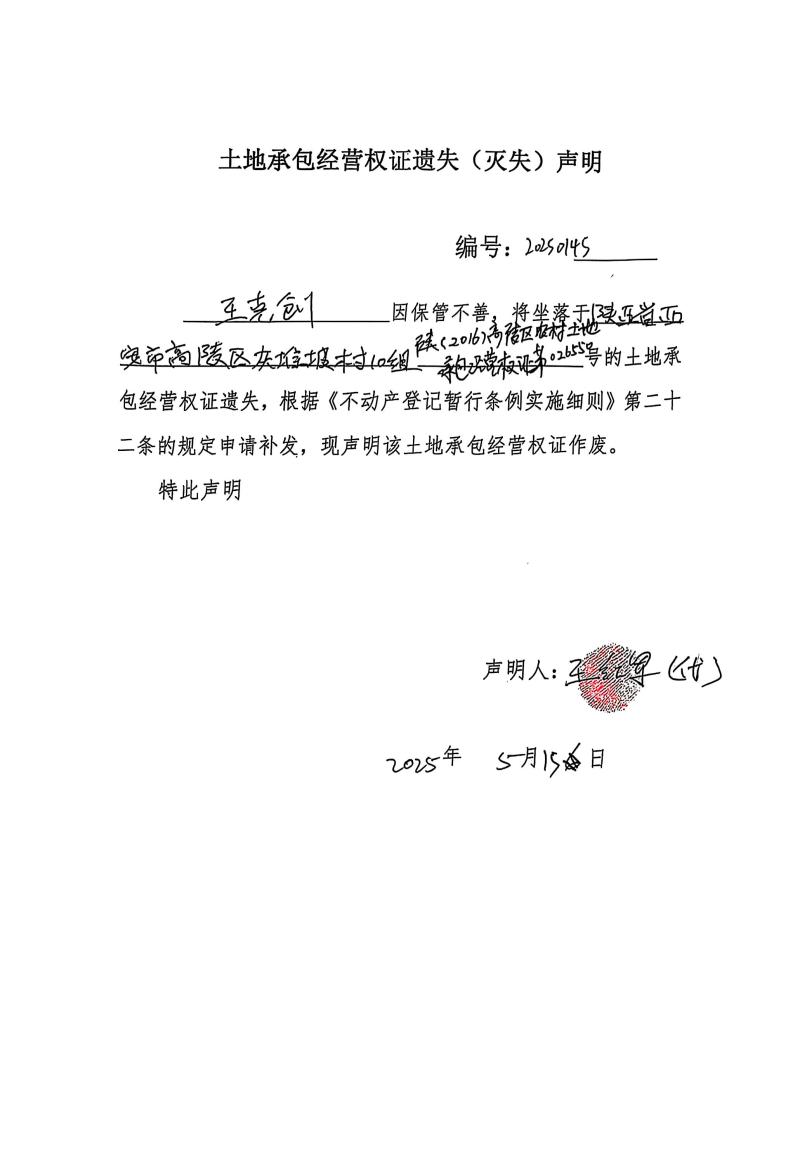 土地承包经营权证遗失（灭失）声明
编号：20250145
王克创 因保管不善，将坐落于陕西省西
安市高陵区灰堆坡村10组 陕(2016)高陵区农村土地
承包经营权证第02655号 号的土地承
包经营权证遗失，根据《不动产登记暂行条例实施细则》第二十
二条的规定申请补发，现声明该土地承包经营权证作废。
特此声明
声明人：王红军(代)
2025年 5月15日